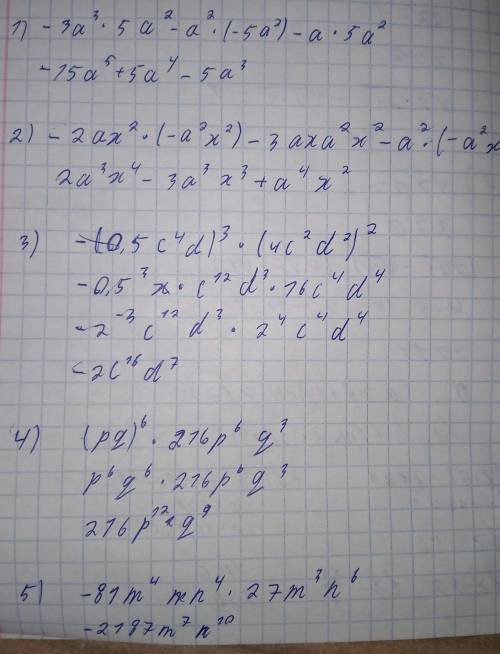 1) -3a³ · 5a² - a² · (-5a²) - a · 5a²
-15a⁵ + 5a⁴ - 5a³
2) -2ax² · (-a²x²) - 3axa²x² - a² · (-a²x
2a³x⁴ - 3a³x³ + a⁴x²
3) -(0,5c⁴d)³ · (4c²d²)²
-0,5³ · c¹²d³ · 16c⁴d⁴
-2⁻³c¹²d³ · 2⁴c⁴d⁴
-2c¹⁶d⁷
4) (pq)⁶ · 216p⁶q³
p⁶q⁶ · 216p⁶q³
216p¹²q⁹
5) -81m⁴n⁴ · 27m³n⁶
-2187m⁷n¹⁰